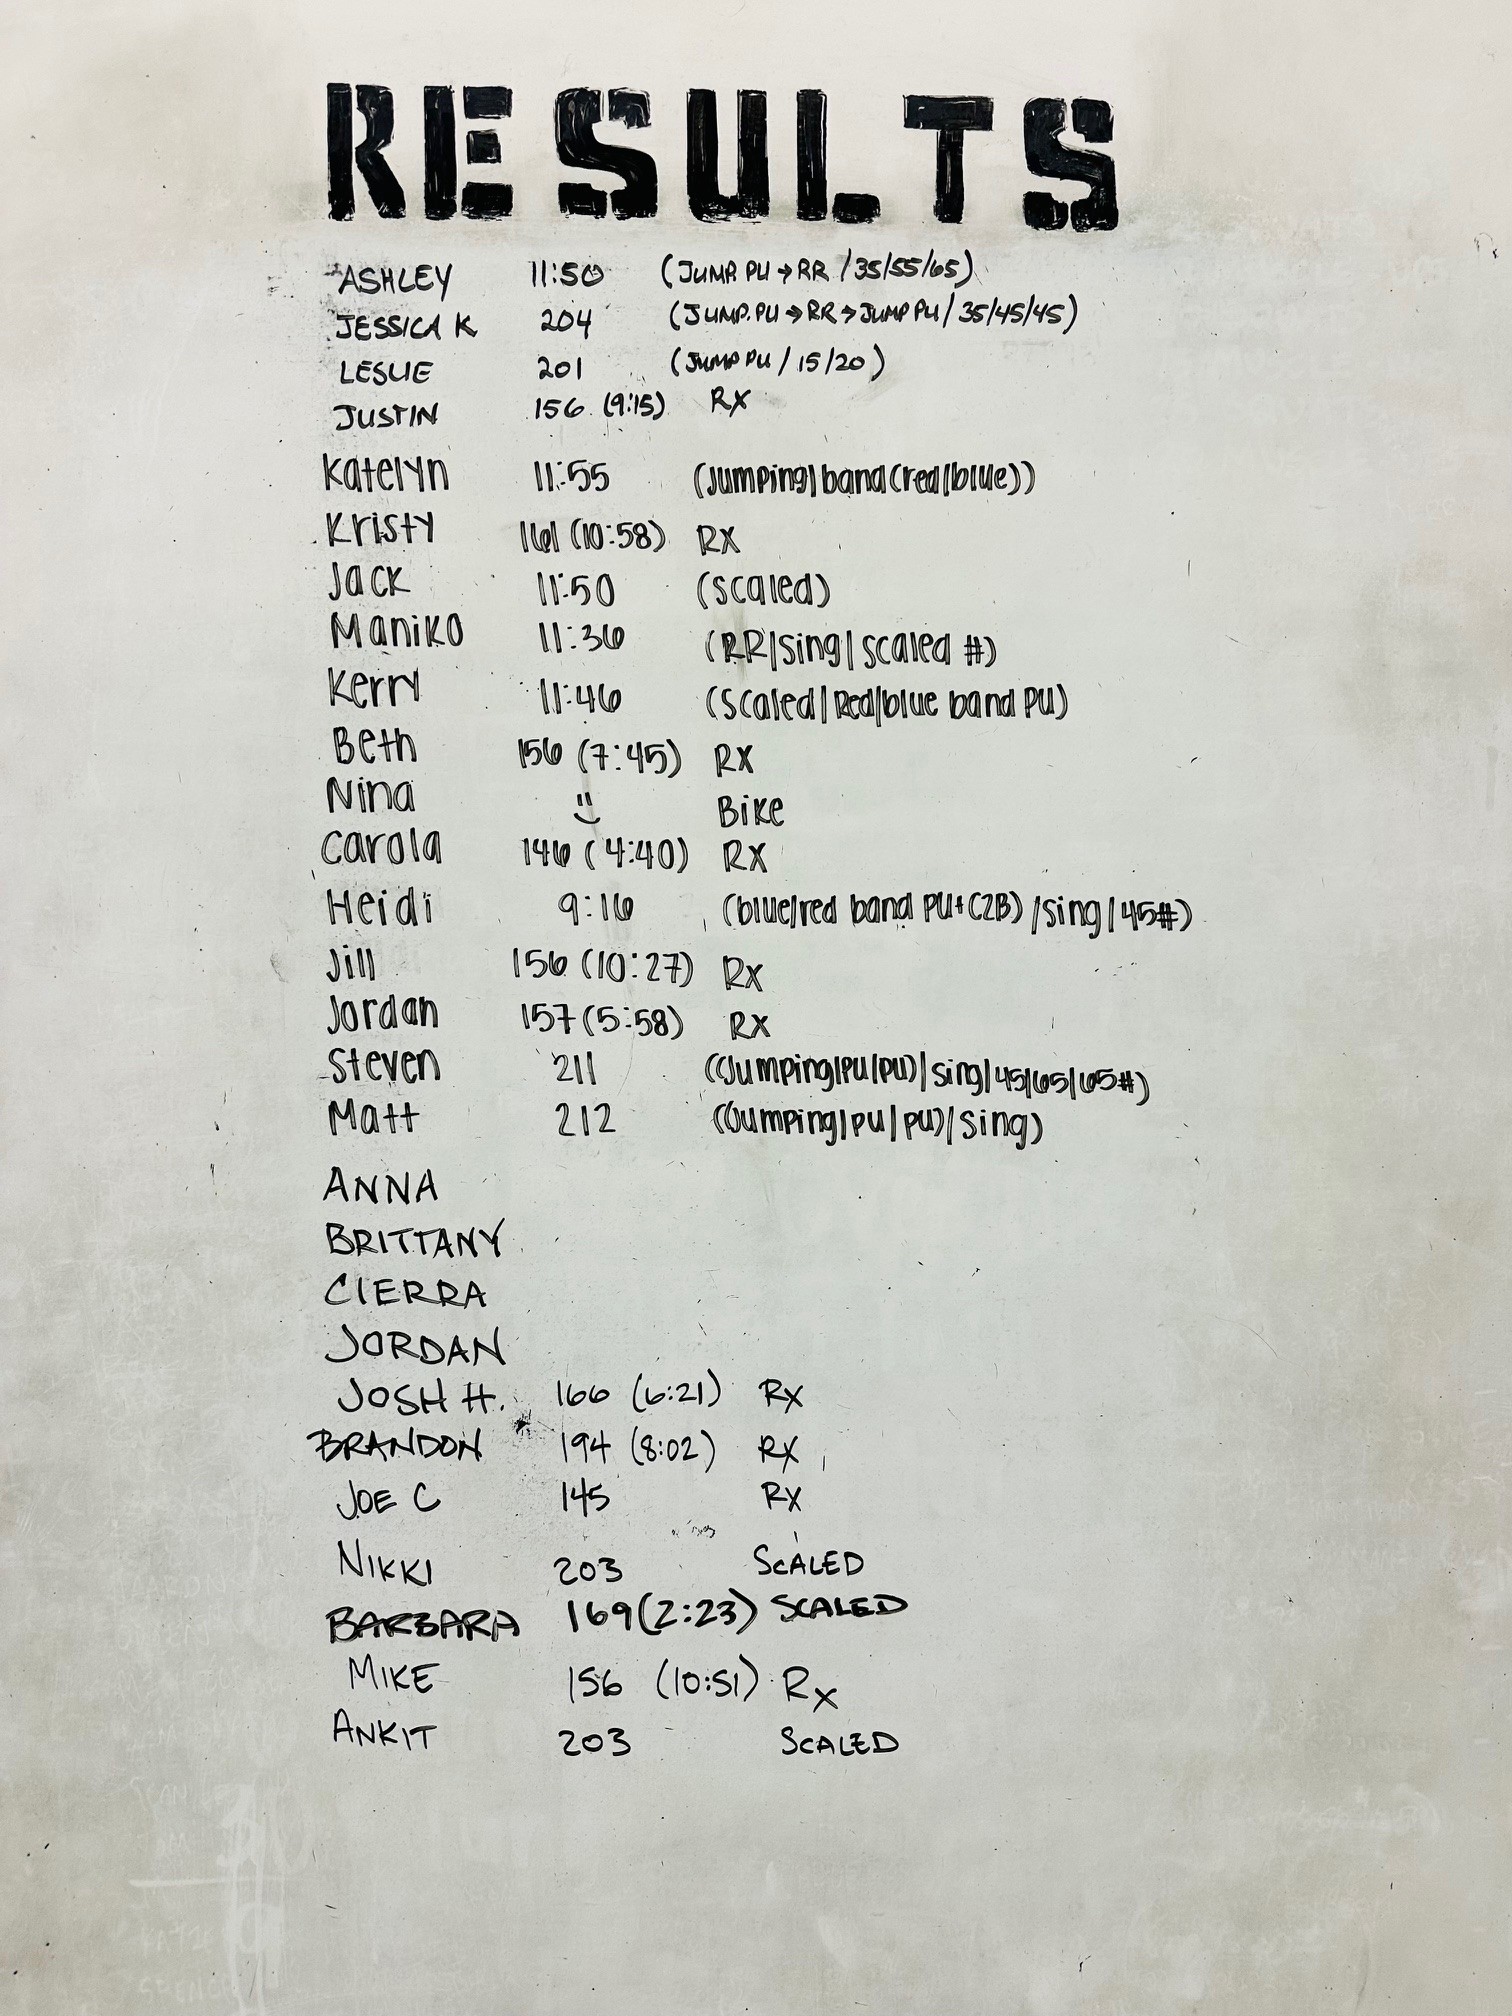 RESULTS
ASHLEY 11:50 (JUMP PU → RR / 35/55/65)
JESSICA K 204 (JUMP. PU → RR → JUMP PU / 35/45/45)
LESLIE 201 (JUMP PU / 15/20)
JUSTIN 156 (9:15) RX
Katelyn 11:55 (Jumping|band(red/blue))
Kristy 161 (10:58) RX
Jack 11:50 (scaled)
Maniko 11:36 (RR|sing| scaled #)
Kerry 11:46 (Scaled|Red/blue band PU)
Beth 156 (7:45) RX
Nina Bike
Carola 146 (4:40) RX
Heidi 9:16 (blue/red band PU+C2B) /sing/45#)
Jill 156 (10:27) Rx
Jordan 157 (5:58) RX
Steven 211 ((Jumping|PU|PU)|sing|45|65|65#)
Matt 212 ((Jumping|PU|PU)/sing)
ANNA
BRITTANY
CIERRA
JORDAN
JOSH H. 166 (6:21) Rx
BRANDON 194 (8:02) RX
JOE C 145 RX
NIKKI 203 SCALED
BARBARA 169 (2:23) SCALED
MIKE 156 (10:51) Rx
ANKIT 203 SCALED